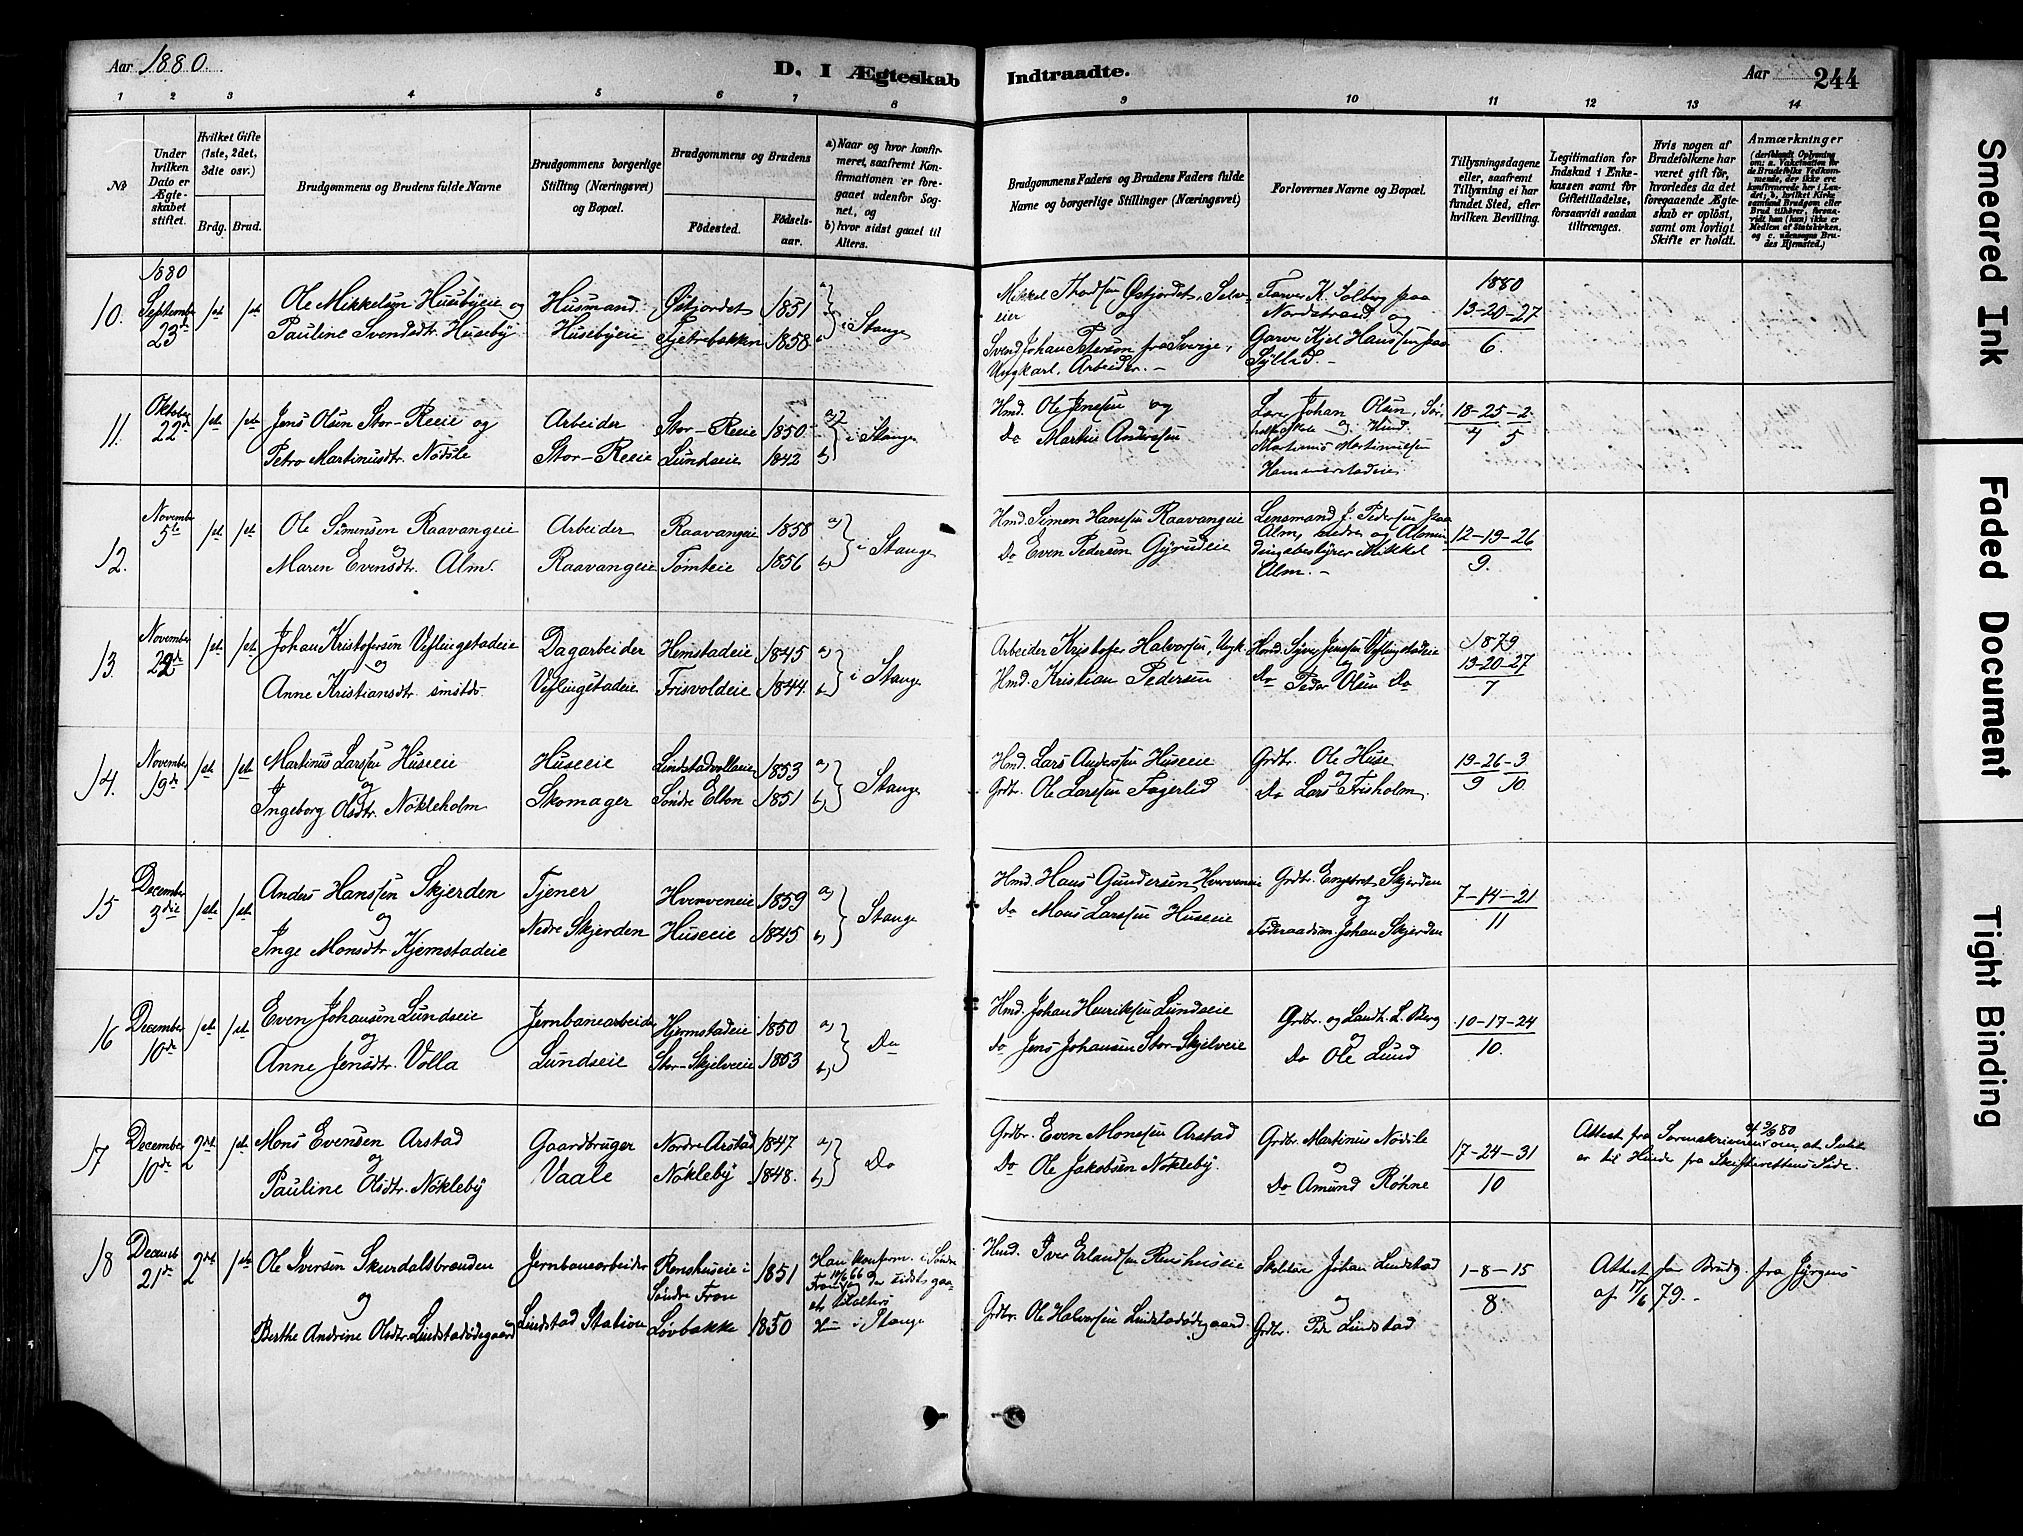 Aar 1880.
D. I Ægteskab
Indtraadte.
Aar
244
1 2 3 4 5 6 7 8 9 10 11 12 13 14
№
Under hvilken Dato er Ægteskabet stiftet.
Hvilket Gifte (1ste, 2det, 3die osv.)
Brdg. Brud.
Brudgommens og Brudens fulde Navne
Brudgommens borgerlige Stilling (Næringsvei) og Bopæl.
Brudgommens og Brudens
Fødested.
Fødselsaar.
a) Naar og hvor konfirmeret, saafremt Konfirmationen er foregaaet udenfor Sognet, og
b) hvor sidst gaaet til Alters.
Brudgommens Faders og Brudens Faders fulde Navne og borgerlige Stillinger (Næringsvei)
Forlovernes Navne og Bopæl.
Tillysningsdagene eller, saafremt Tillysning ei har fundet Sted, efter hvilken Bevilling.
Legitimation for Indskud i Enkekassen samt for Giftetilladelse, forsaavidt saadan tiltrænges.
Hvis nogen af Brudefolkene har været gift før, hvorledes da det foregaaende Ægteskab er opløst, samt om lovligt Skifte er holdt.
Anmærkninger
(deriblandt Oplysning om: a. Vakcination for de Brudefolks Vedkommende, der ikke ere konfirmerede her i Landet, b. hvilket Kirkesamfund Brudgom eller Brud tilhører, forsaavidt han (hun) ikke er Medlem af Statskirken, og c. udensogns Brudes Hjemsted.)
10. 1880 September 23de 1ste 1ste Ole Mikkelsen Husebyeie og Husmand Østjordet 1851 a) i Stange
Pauline Svendsdtr. Huseby. Husebyeie Tjetrebakken 1858 b)
Mikkel Østjordet, Selveier og
Svend Johan Peterson fra Sverige, Ungkarl. Arbeider.
Farver K. Solberg paa Nordstrand og
Garver Kjel Hanssen paa
1880 13-20-27
6.
11. Oktober 22de 1ste 1ste Jens Olsen Stor-Reeie og Arbeider Stor-Reeie 1850 a) i Stange
Petra Martinusdtr. Nødsle Stor-Reeie Lundseie 1842 b)
Hmd. Ole Jensen og
Do Martin Andersen
Lars Johan Olsen, og Hmd.
Martinus Martinussen Hammerstadeie
18-25-2
4 5
12. November 5te 1ste 1ste Ole Simensen Raavangeie Arbeider Raavangeie 1858 a) i Stange
og
Maren Evensdtr. Alm. Raavangeie Tomteie 1856 b)
Hmd. Simen Hanssen Raavangeie
Do Even Pedersen Gyrudeie
Lensmand J. Pedersen paa Alm, nedre og Almindingsbestyrer Mikkel Alm.
12-19-26
9.
13. November 1ste 1ste Johan Kristofersen Veflingstadeie Dagarbeider Hemstadeie 1845 a) i Stange
og
Anne Kristiansdtr. smstds Veflingstadeie Frisvoldeie 1844 b)
Arbeider Kristofer Halvorsen, Ungk.
Hmd. Kristian Pedersen
Hmd. Syver Jenssen Veflingstadeie
Do Peder Olsen Do
1879
13-20-27
7
14. November 19de 1ste 1ste Martinus Larssen Huseeie Huseeie Lindstadvollaeie 1853 a) Stange
og
Ingeborg Olsdtr. Nökleholm Skomager Søndre Elton 1851 b)
Hmd. Lars Anderssen Huseeie
Grdbr. Ole Larssen Fagerlid
Grdbr. Ole Huse
og
Do Lars Frisholm
19-26-3
9 10.
15 December 3die 1ste 1ste Anders Hanssen Skjerden Tjener Hverveneie 1859 a) Stange
og
Inge Monsdtr. Kjemstadeie Nedre Skjerden Huseeie 1845 b)
Hmd. Hans Gundersen Hverveneie
Do Mons Larssen Huseeie
Grdbr. Engebret Skjerden
og
Føderaadsm. Johan Skjerden
7-14-21
11
16 December 10de 1ste 1ste Even Johansen Lundseie Jernbanearbeider Hjermstadeie 1850 a) Do
og
Anne Jensdtr. Volla Lundseie Stor-Skjelveie 1853 b)
Hmd. Johan Henriksen Lundseie
Do Jens Johansen Stor-Skjelveie
Grdbr. og Landh. L. Berg
og
Do Ole Lund
10-17-24
10.
17 December 10de 2det 1ste Mons Evensen Arstad Gaardbruger Nordre Arstad 1847 a) Do
og
Pauline Olsdtr. Nökleby Vaale Nökleby 1848. b)
Grdbr. Even Monssen Arstad
Do Ole Jakobsen Nökleby.
Grdbr. Martinus Nödsle
og
Do Amund Röhne
17-24-31
10
Attest fra Sorenskriveren af 3/6 80 om, at Intet er til Hinde fra Skifterettens Side.
18 Decemb 21de 2det 1ste Ole Iversen Skurdalsbrænden Jernbanearbeider Renshuseie i Söndre Fron 1851 Han konfirm. i Söndre Fron
og
Berthe Andrine Olsdtr. Lindstadödegaard Lindstad Station Lövbakke 1850 i Stange
Hmd. Iver Erlandsen Renshuseie
Grdbr. Ole Halvorsen Lindstadödegaard.
Johan Lindstad
og
Grdbr. Peder Lindstad
1-8-15
8.
Attest for Brudg. fra af 17/6 79.
Smeared Ink
Faded Document
Tight Binding